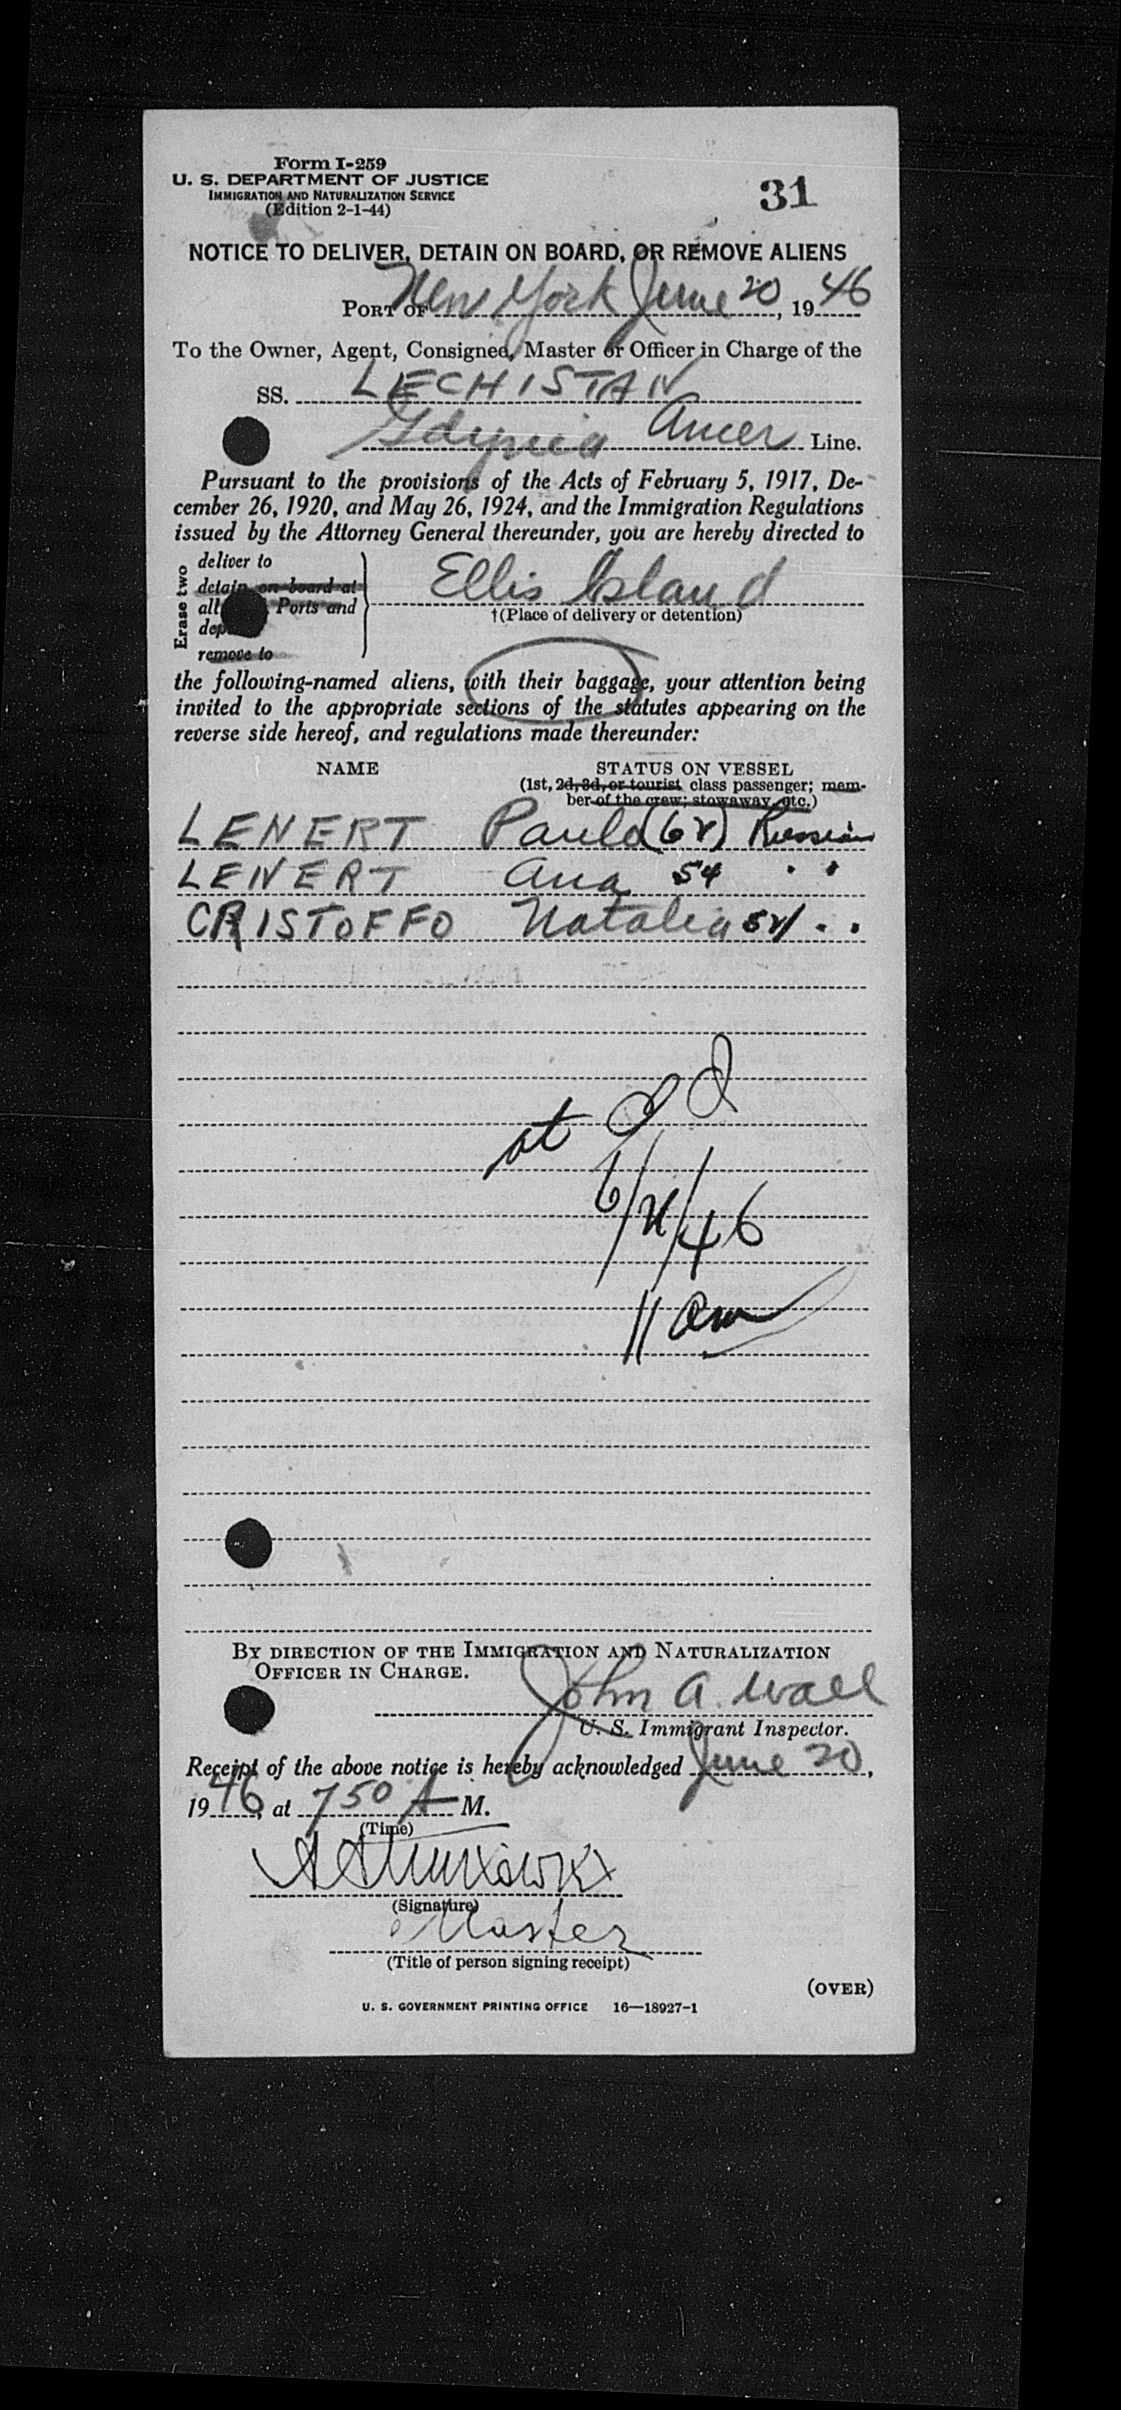 Form I-259
U. S. DEPARTMENT OF JUSTICE
IMMIGRATION AND NATURALIZATION SERVICE
(Edition 2-1-44)
31
NOTICE TO DELIVER, DETAIN ON BOARD, OR REMOVE ALIENS
PORT OF New York June 20, 1946
To the Owner, Agent, Consignee, Master or Officer in Charge of the
SS. LECHISTAN
Gdynia Amer Line.
Pursuant to the provisions of the Acts of February 5, 1917, De-
cember 26, 1920, and May 26, 1924, and the Immigration Regulations
issued by the Attorney General thereunder, you are hereby directed to
Erase two
deliver to
detain on board at
all Ports and
remove to
Ellis Island
†(Place of delivery or detention)
the following-named aliens, with their baggage, your attention being
invited to the appropriate sections of the statutes appearing on the
reverse side hereof, and regulations made thereunder:
NAME STATUS ON VESSEL
(1st, 2d, 3d, or tourist class passenger; mem-
ber of the crew; stowaway, etc.)
LENERT Paulo Russian
LENERT Ana 54 " "
CRISTOFFO Natalia " "
at
6/21/46
11 am
BY DIRECTION OF THE IMMIGRATION AND NATURALIZATION
OFFICER IN CHARGE.
John A. Wall
U. S. Immigrant Inspector.
Receipt of the above notice is hereby acknowledged June 20,
1946, at 750 A M.
(Time)
(Signature)
Master
(Title of person signing receipt)
(OVER)
U. S. GOVERNMENT PRINTING OFFICE 16—18927-1